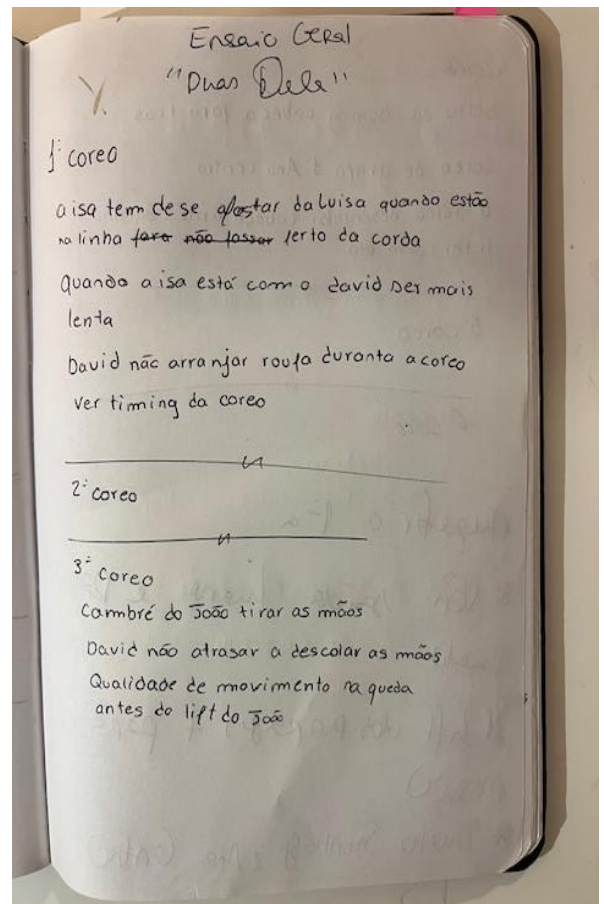 Ensaio Geral
"Duas Dele"
1ª coreo
a isa tem de se afastar da Luisa quando estão
na linha para não passar perto da corda
Quando a isa está com o david ser mais
lenta
David não arranjar roupa durante a coreo
ver timing da coreo
2ª coreo
3ª coreo
Cambré do João tirar as mãos
David não atrasar a descolar as mãos
Qualidade de movimento na queda
antes do lift do João